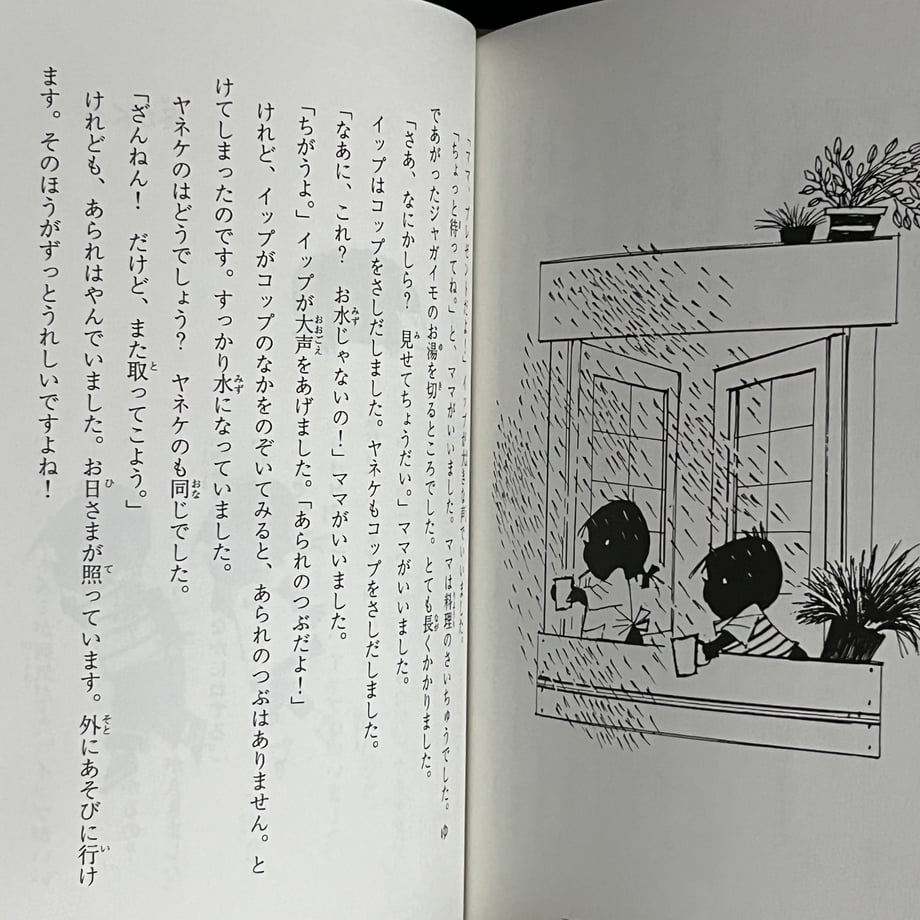 「ママ、プレゼントだよ！」イップが大きな声でいいました。
「ちょっと待ってね。」と、ママがいいました。ママは料理のさいちゅうでした。ゆ
であがったジャガイモのお湯を切るところでした。とても長くかかりました。
「さあ、なにかしら？　見せてちょうだい。」ママがいいました。
イップはコップをさしだしました。ヤネケもコップをさしだしました。
「なあに、これ？　お水じゃないの！」ママがいいました。
「ちがうよ。」イップが大声をあげました。「あられのつぶだよ！」
けれど、イップがコップのなかをのぞいてみると、あられのつぶはありません。と
けてしまったのです。すっかり水になっていました。
ヤネケのはどうでしょう？　ヤネケのも同じでした。
「ざんねん！　だけど、また取ってこよう。」
けれども、あられはやんでいました。お日さまが照っています。外にあそびに行け
ます。そのほうがずっとうれしいですよね！